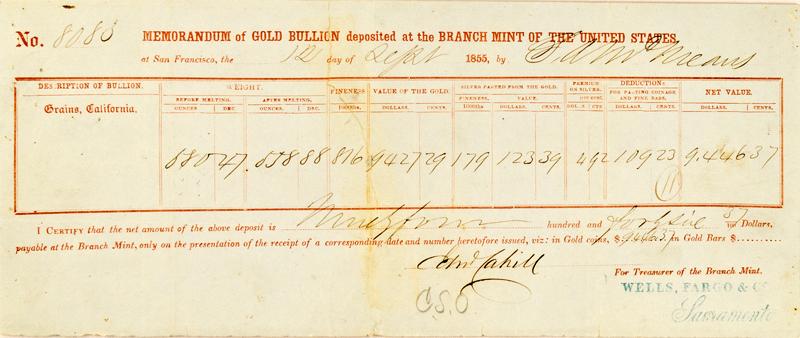 No. 8080 MEMORANDUM of GOLD BULLION deposited at the BRANCH MINT OF THE UNITED STATES,
at San Francisco, the 12 day of Sept 1855, by
DESCRIPTION OF BULLION. WEIGHT. FINENESS VALUE OF THE GOLD. SILVER PARTED FROM THE GOLD. PREMIUM ON SILVER. DEDUCTIONS FOR PARTING COINAGE AND FINE BARS. NET VALUE.
BEFORE MELTING. AFTER MELTING. FINENESS. VALUE.
OUNCES DEC. OUNCES DEC. 1000ths. DOLLARS. CENTS. 1000ths DOLLARS. CENTS. DOLS. CTS DOLLARS. CENTS. DOLLARS. CENTS.
Grains, California.
580 47 558 88 816 9427 29 179 123 39 4 92 109 23 9.446 37
11
I CERTIFY that the net amount of the above deposit is Ninety four hundred and forty six 37/100 Dollars,
payable at the Branch Mint, only on the presentation of the receipt of a corresponding date and number heretofore issued, viz: in Gold coins, $9446.37 in Gold Bars $..........
Edw Cahill
For Treasurer of the Branch Mint.
C.S.O
WELLS, FARGO & Co
Sacramento